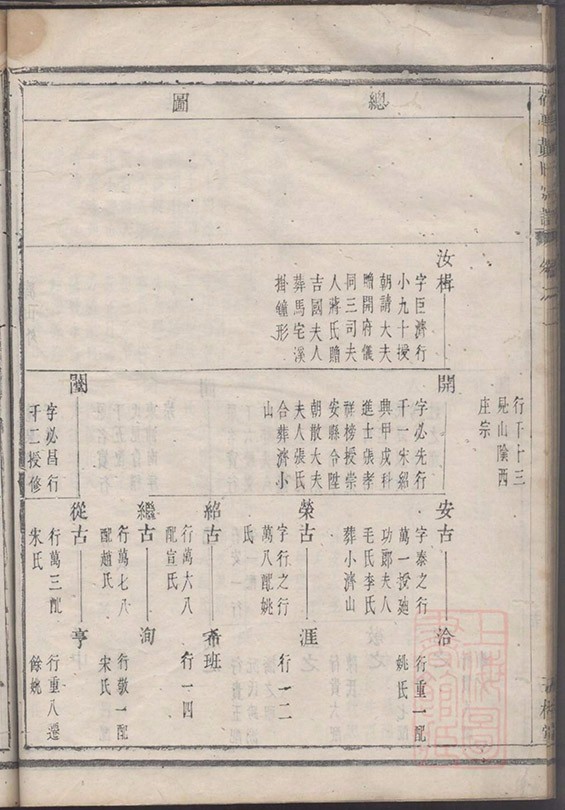 總圖
行干十三
見山陰西
座宗
汝楫
字巨濟行
小九十授
朝請大夫
贈開府儀
同三司夫
人蔣氏贈
吉國夫人
葬馬宅溪
掛鐘形
開
字必先行
千一宋紹
典甲戌科
進士張孝
祥榜授崇
安縣令陞
朝散大夫
夫人張氏
合葬濟小
山
闔
字必昌行
于二授修
安古
字泰之行
萬一授廸
功郎夫人
毛氏李氏
葬小濟山
榮古
字行之行
萬八配姚
紹古
行萬六八
配宣氏
繼古
行萬七八
配趙氏
從古
行萬三配
宋氏
洽
行重一配
姚氏
涯
行一二
希班
行一四
洵
行敬一配
宋氏
亨
行重八遷
餘姚